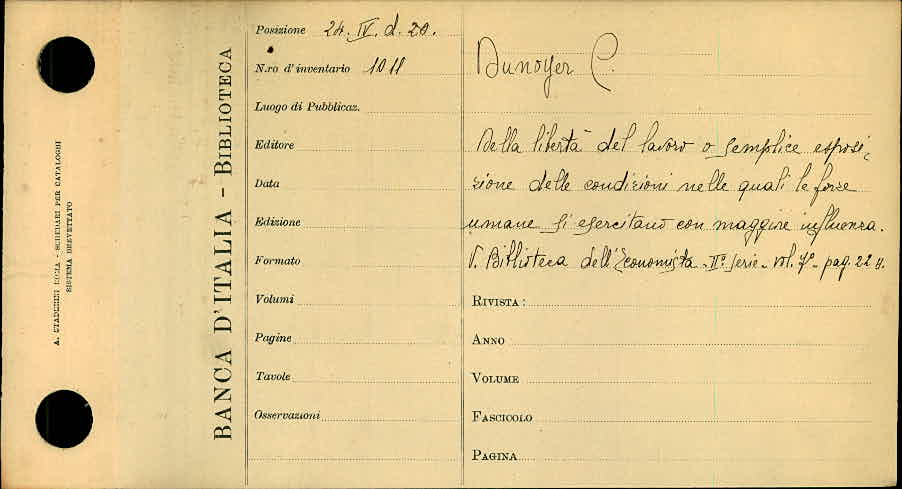 A. STADERINI ROMA - SCHEDARI PER CATALOGHI
SISTEMA BREVETTATO
BANCA D'ITALIA - BIBLIOTECA
Posizione 24. IV. d. 20.
N.ro d'inventario 1011
Luogo di Pubblicaz.
Editore
Data
Edizione
Formato
Volumi
Pagine
Tavole
Osservazioni
Dunoyer C.
Della libertà del lavoro o semplice esposi-
zione delle condizioni nelle quali le forze
umane si esercitano con maggiore influenza.
V. Biblioteca dell'Economista - IIa serie - vol. 7o - pag.
RIVISTA :
ANNO
VOLUME
FASCICOLO
PAGINA